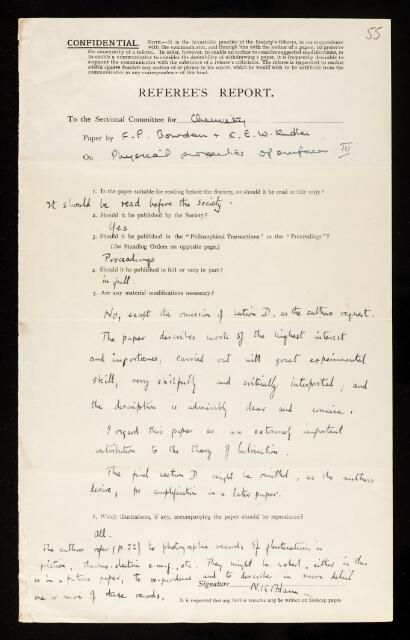 55
CONFIDENTIAL. NOTE.—It is the invariable practice of the Society's Officers, in correspondence
with the communicator, and through him with the author of a paper, to preserve
the anonymity of a referee. In order, however, to enable an author to consider suggested modifications, or
to enable a communicator to consider the desirability of withdrawing a paper, it is frequently desirable to
acquaint the communicator with the substance of a referee's criticisms. The referee is requested to enclose
within square brackets any portion of or phrase in his report, which he would wish to be withheld from the
communicator in any correspondence of this kind.
REFEREE'S REPORT.
To the Sectional Committee for Chemistry
Paper by F. P. Bowden & K. E. W. Ridler
On Physical properties of surfaces III
1. Is the paper suitable for reading before the Society, or should it be read in title only?
It should be read before the Society.
2. Should it be published by the Society?
Yes
3. Should it be published in the "Philosophical Transactions" or the "Proceedings"?
(See Standing Orders on opposite page.)
Proceedings
4. Should it be published in full or only in part?
in full.
5. Are any material modifications necessary?
No, except the omission of section D, as the authors request.
The paper describes work of the highest interest
and importance, carried out with great experimental
skill, very skilfully and critically interpreted; and
the description is admirably clear and concise.
I regard this paper as an extremely important
contribution to the theory of lubrication.
The final section D might be omitted, as the authors
desire, for amplification in a later paper.
6. Which illustrations, if any, accompanying the paper should be reproduced?
All.
The authors refer (p. 22) to photographic records of fluctuations in
friction, thermo-electric e.m.f., etc. They might be asked, either in this
or in a future paper, to reproduce and to describe in more detail
one or more of these records.
Signature N. K. Adam
It is requested that any further remarks may be written on foolscap paper.